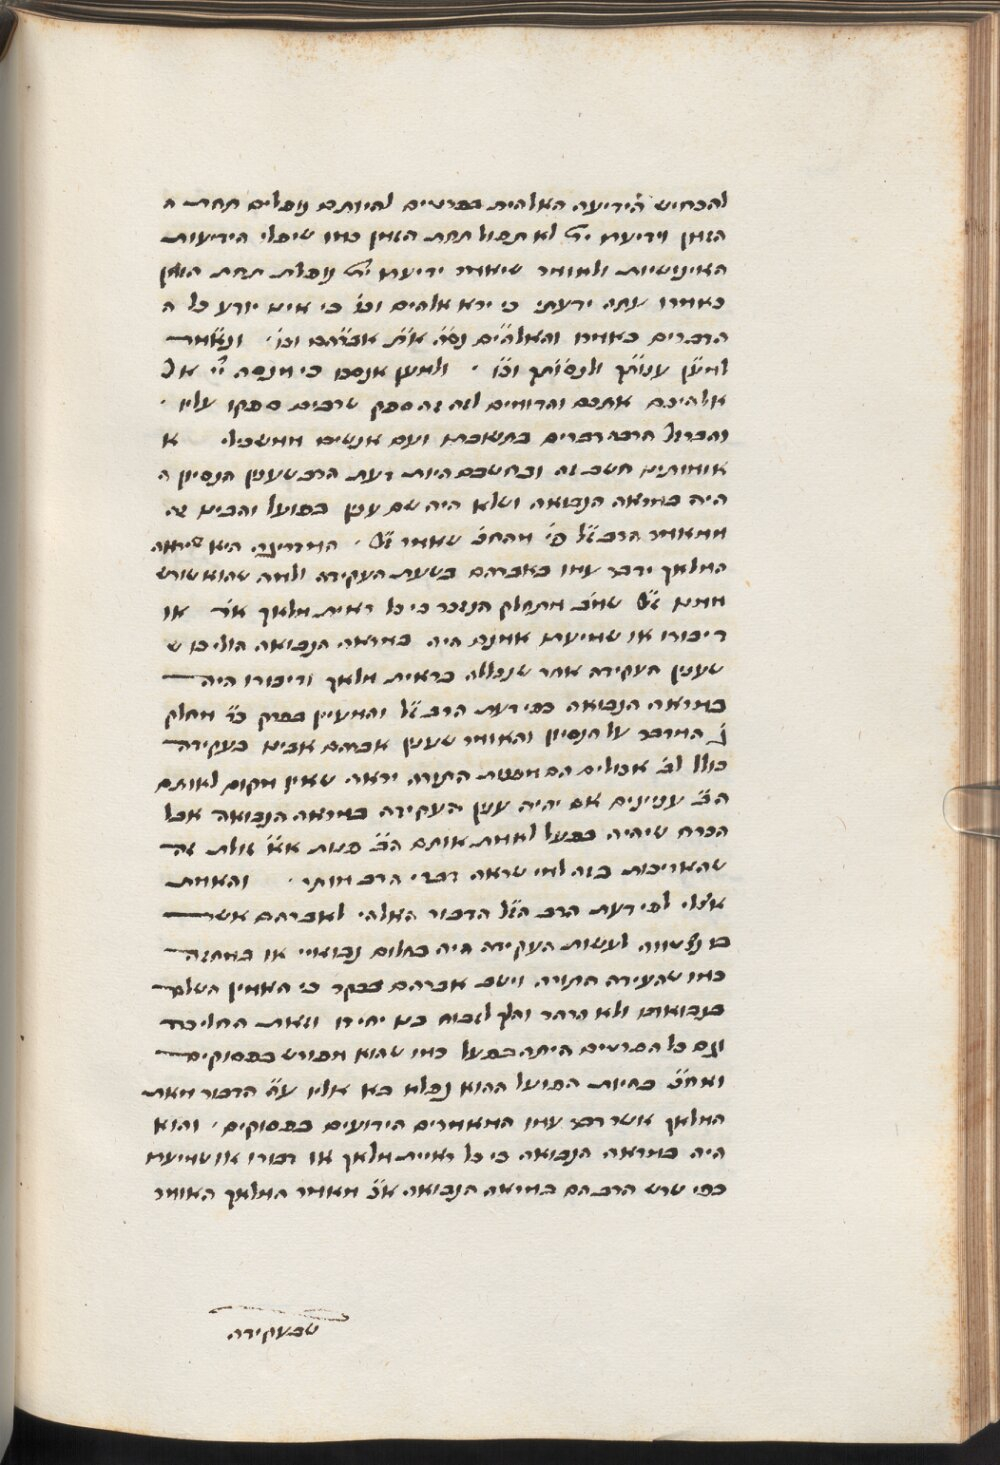 להכחיש הידיעה האלהית בפרטים להיותם נופלים תחת ה
הזמן וידיעתו ית׳ לא תפול תחת הזמן כמו שיפלו הידיעות
האינושיות ולאומר שיאמר ידיעתו ית׳ נופלת תחת הזמן
כאמרו עתה ידעתי כי ירא אלהים וכו׳ כי איש יודע כל ה
הדברים כאמרו והאלהים נסה את אברהם וכו׳ ונאמר
למען ענותך ולנסותך וכו׳ · ולמען אנסנו כי מנסה יי׳ א
אלהיכם אתכם והדומים לזה זה ספק שרבים ספקו עליו ·
והרבה דברים בתשובתו ועם אנשים ממשכילי א
אומתינו חשב זה ובחשבם היות דעת הרב שענין הנסיון ה
היה במראה הנבואה ושלא היה שם ענין בפועל והביא זה
ממאמר הרב ז״ל פ׳ מהח״ב שאמר ז״ל · המדרגה היא שיראה
המלאך ידבר עמו כאברהם בשעת העקידה ולמה שהוא שורש
ז״ל מהחלק הנזכר כי כל ראית מלאך או
דיבורו או שמיעת היה במראה הנבואה הוליכו ש
שענין העקידה אחר שנכללה בראית מלאך ודיבורו היה
במראה הנבואה כפי דעת הרב ז״ל והמעיין בפרק כ״ד מחלק
ג׳ המדבר על הנסיון והאומר שענין אברהם אבינו בעקידה
כולל לב׳ הם מפנות התורה יראה שאין מקום לאותם
הב׳ ענינים אם יהיה ענין העקידה במראה הנבואה אבל
הכרח שיהיה בפועל לאמת אותם הב׳ פנות זולת זה
שהאריכות בזה למי שראה דברי הרב מותר · והאמת
אצלי לפי דעת הרב הז״ל הדבור האלהי לאברהם אשר
בו נצטווה לעשות העקידה היה בחלום נבואיי או במחזה
כמו שהעידה התורה וישכם אברהם בבקר כי האמין השלם
בנבואתו ולא הרהר והלך לזבוח בנו יחידו וזאת ההליכה
וגם כל הפרטים היתה בפועל כמו שהוא מפורש בפסוקים
ואח״כ בהיות הפועל ההוא נפלא בא אליו ע״ה הדבור מאת
המלאך אשר דבר עמו המאמרים הידועים בפסוקים · והוא
היה במראה הנבואה כי כל ראיית מלאך או דבורו או שמיעתו
כפי שרש הרב הם במראה הנבואה א״כ מאמר המלאך האומר
שבעקידה